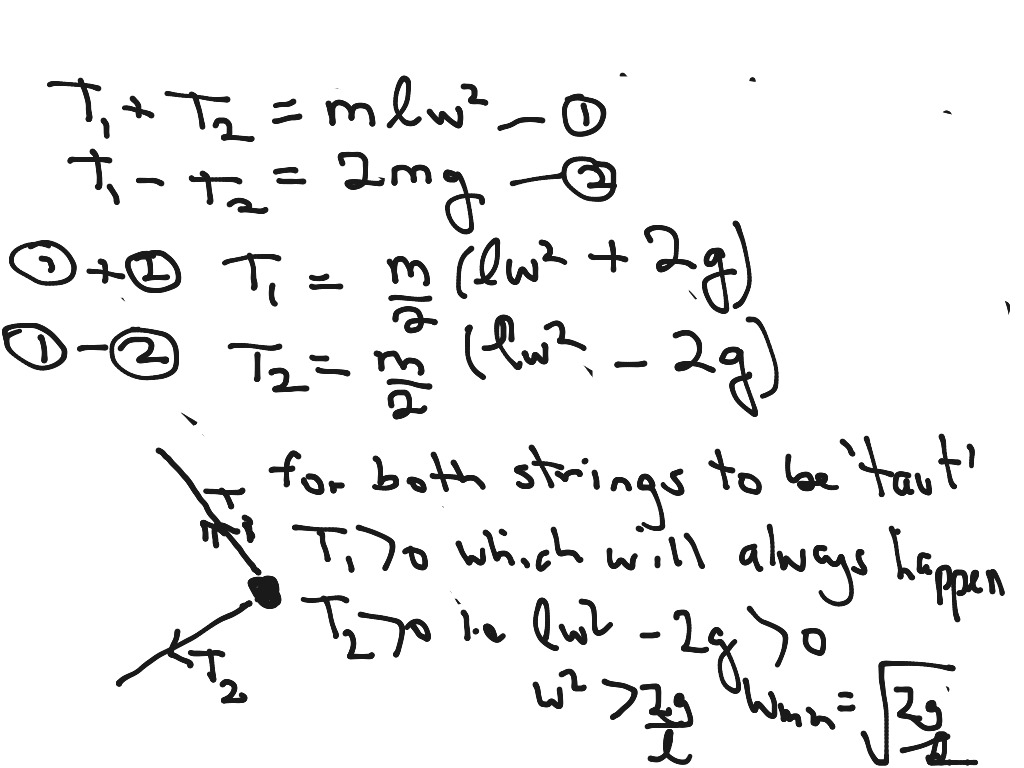 T₁ + T₂ = mlω² — ①
T₁ - T₂ = 2mg — ②
① + ② T₁ = m/2 (lω² + 2g)
① - ② T₂ = m/2 (lω² - 2g)
for both strings to be 'taut'
T₁
T₁ > 0 which will always happen
T₂ > 0 i.e lω² - 2g > 0
T₂
ω² > 2g/l ωmin = √(2g/l)